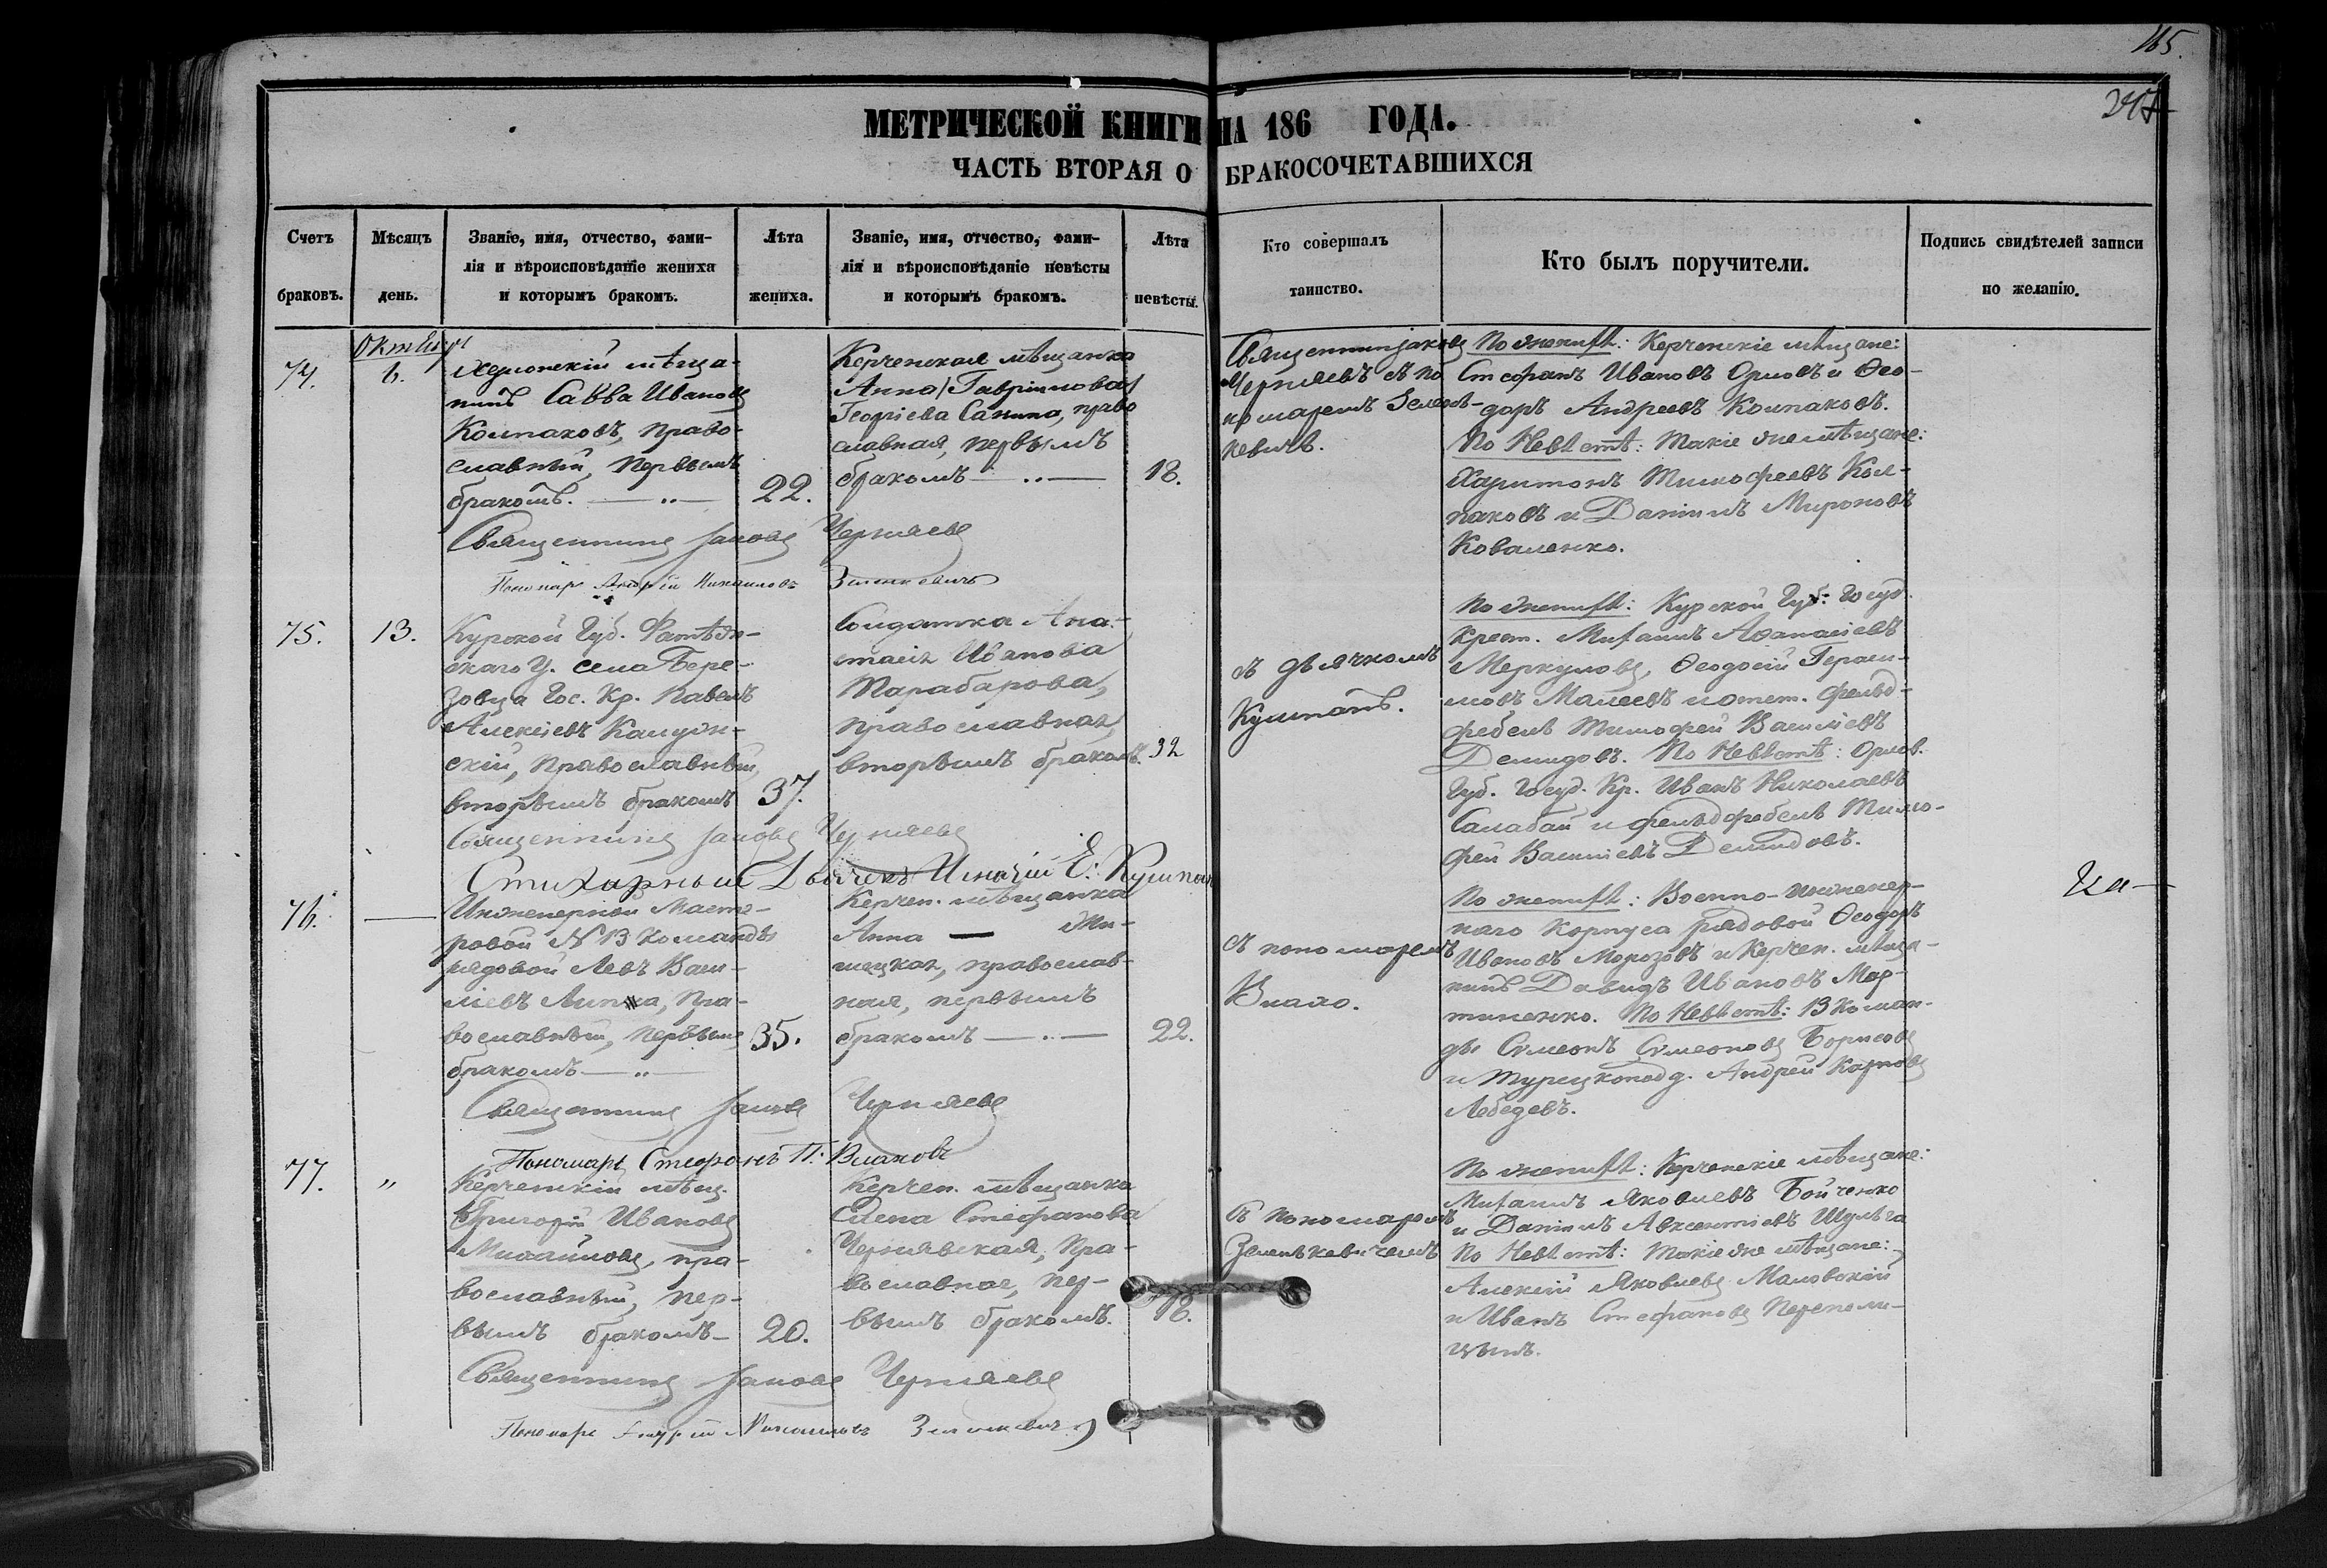 165.
247
МЕТРИЧЕСКОЙ КНИГИ НА 186 ГОДА.
ЧАСТЬ ВТОРАЯ О БРАКОСОЧЕТАВШИХСЯ
Счетъ браковъ.
Мѣсяцъ день.
Званіе, имя, отчество, фами-
лія и вѣроисповѣданіе жениха
и которымъ бракомъ.
Лѣта жениха.
Званіе, имя, отчество, фами-
лія и вѣроисповѣданіе невѣсты
и которымъ бракомъ.
Лѣта невѣсты.
Кто совершалъ
таинство.
Кто былъ поручители.
Подпись свидѣтелей записи
по желанію.
Октябрь
74.
6.
Херсонскій мѣща-
нинъ Савва Ивановъ
Колпаковъ, право-
славный, первымъ
бракомъ.
22.
Керченская мѣщанка
Анна /Гавріилова/
Георгіева Санина, право
славная, первымъ
бракомъ
18.
Священникъ Іаковъ
Черняевъ съ по
номаремъ Зелен-
кевичъ.
По женихѣ: Керченскіе мѣщане:
Стефанъ Ивановъ Орловъ и Ѳео-
доръ Андреевъ Колпаковъ.
По Невѣстѣ: Такіе же мѣщане:
Харитонъ Тимофеевъ Кол-
паковъ и Даніилъ Мироновъ
Коваленко.
Священникъ Іаковъ Черняевъ
Пономарь Андрій Михаиловъ Зеленкевичъ
75.
13.
Курской Губ. Фатѣж-
скаго У. села Бере-
зовца Гос. Кр. Павелъ
Алексіевъ Калуж-
скій, православный,
вторымъ бракомъ
37.
Солдатка Ана-
стасія Иванова
Тарабарова,
православная,
вторымъ бракомъ.
32
съ дьячкомъ
Кушпанъ.
По женихѣ: Курской Губ: Госуд.
Крест. Михаилъ Аѳанасіевъ
Меркуловъ, Ѳеодосій Гераси-
мовъ Малеевъ и отст. Фельд-
фебель Тимофей Василіевъ
Демидовъ. По Невѣстѣ: Орлов.
Губ. Госуд. Кр. Иванъ Николаевъ
Салабай и фельдфебель Тимо-
фей Василіевъ Демидовъ.
Священникъ Іаковъ Черняевъ
Стихарный Дьячекъ Игнатій Е. Кушпан
76.
Инженерной Масте-
ровой № 13 команды
рядовой Левъ Васи-
ліевъ Липка, пра-
вославный, первымъ
бракомъ
35.
Керчен. мѣщанка
Анна — Жи-
лецкая, православ-
ная, первымъ
бракомъ
22.
съ пономаремъ
Влахо.
По женихѣ: Военно-инженер-
наго Корпуса рядовой Ѳеодоръ
Ивановъ Морозовъ и Керчен. мѣща-
нинъ Давидъ Ивановъ Мар-
тиненко. По Невѣстѣ: 13 коман-
ды Сѵмеонъ Сѵмеоновъ Борисовъ
и Турецкопод. Андрей Карповъ
Лебедевъ.
Священникъ Іаковъ Черняевъ
Пономарь Стефанъ П. Влаховъ
77.
„
Керченскій мѣщ.
Григорій Ивановъ
Михайловъ, пра-
вославный, пер-
вымъ бракомъ
20.
Керчен. мѣщанка
Елена Стефанова
Чернявская, пра-
вославная, пер-
вымъ бракомъ.
18.
съ пономаремъ
Зеленкевичемъ
По женихѣ: Керченскіе мѣщане:
Михаилъ Яковлевъ Бойченко
и Даніилъ Авксентіевъ Шульга
По Невѣстѣ: Такіе же мѣщане:
Алексій Яковлевъ Маловскій
и Иванъ Стефановъ Перепели-
цынъ.
Священникъ Іаковъ Черняевъ
Пономарь Андрій Михаиловъ Зеленкевичъ